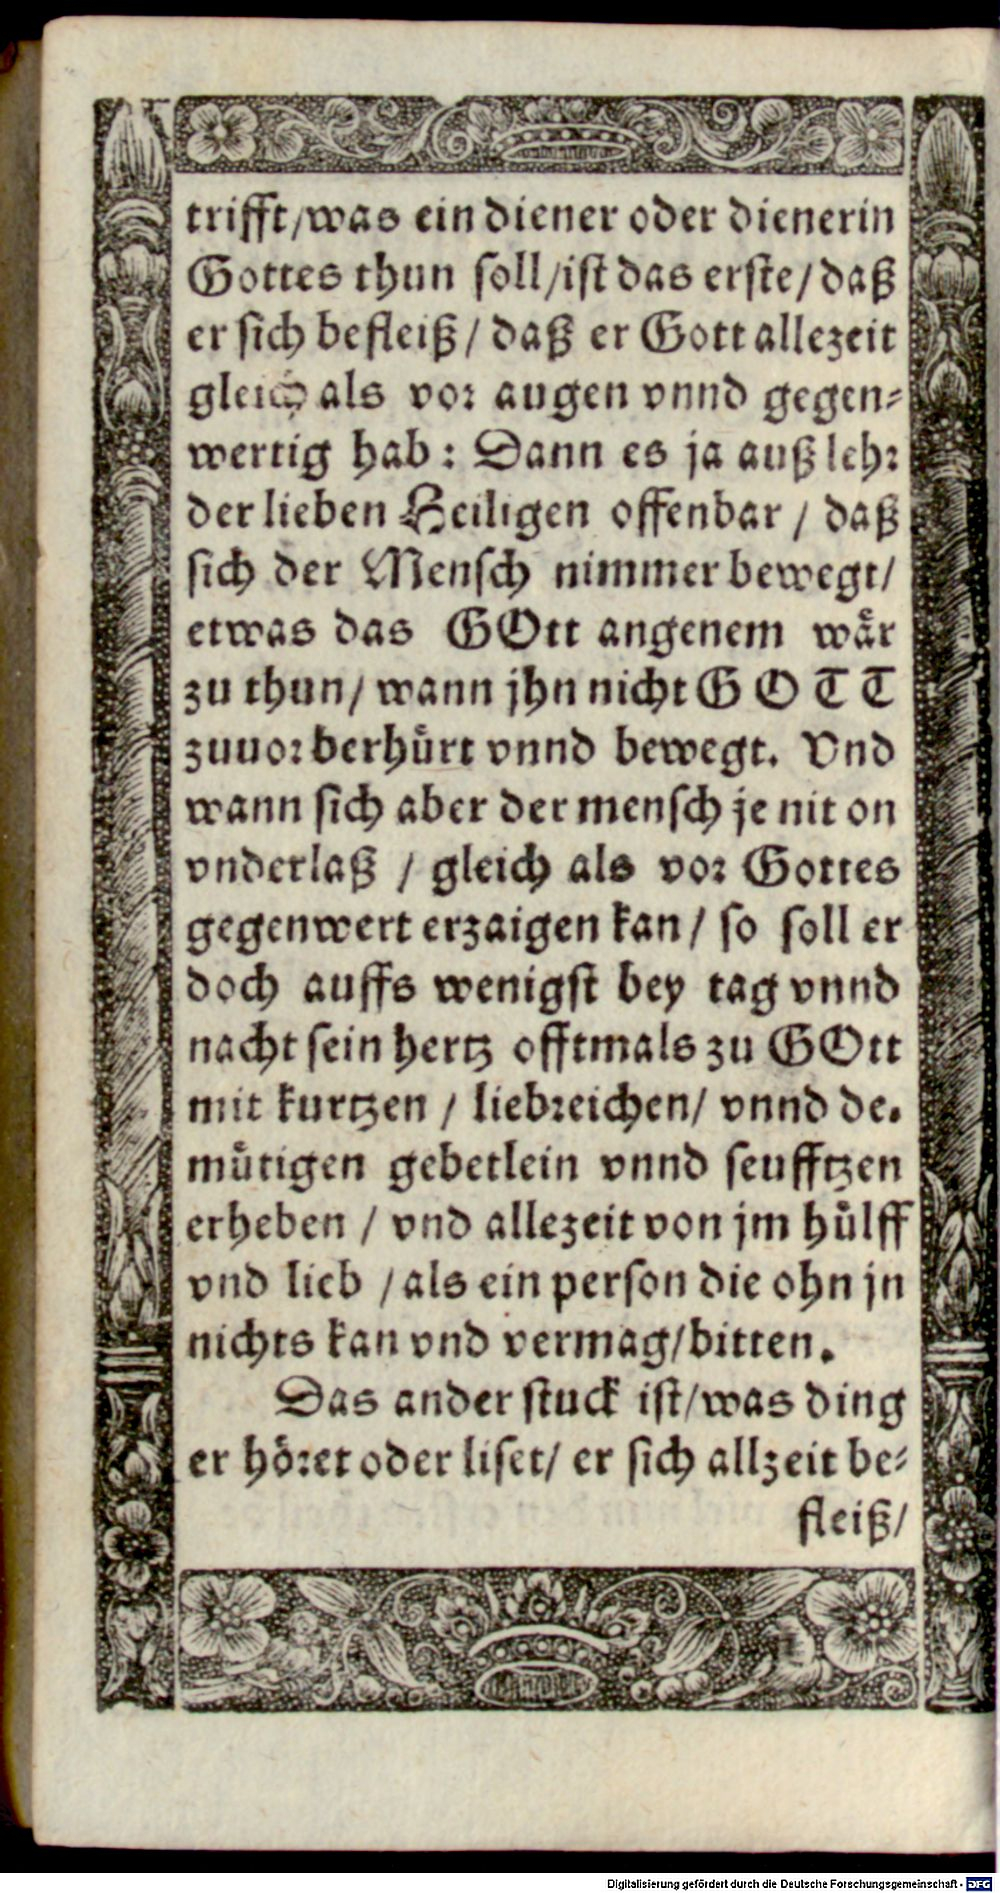 trifft/was ein diener oder dienerin
Gottes thun soll/ist das erste/daß
er sich befleiß/ daß er Gott allezeit
gleich als vor augen vnnd gegen-
wertig hab: Dann es ja auß lehr
der lieben Heiligen offenbar / daß
sich der Mensch nimmer bewegt/
etwas das GOtt angenem wår
zu thun/ wann jhn nicht GOTT
zuuor berhůrt vnnd bewegt. Vnd
wann sich aber der mensch je nit on
vnderlaß / gleich als vor Gottes
gegenwert erzaigen kan/ so soll er
doch auffs wenigst bey tag vnnd
nacht sein hertz offtmals zu GOtt
mit kurtzen / liebreichen/ vnnd de.
můtigen gebetlein vnnd seufftzen
erheben / vnd allezeit von jm hůlff
vnd lieb /als ein person die ohn jn
nichts kan vnd vermag/bitten.
Das ander stuck ist/was ding
er höret oder liset/ er sich allzeit be-
fleiß/
Digitalisierung gefördert durch die Deutsche Forschungsgemeinschaft - DFG